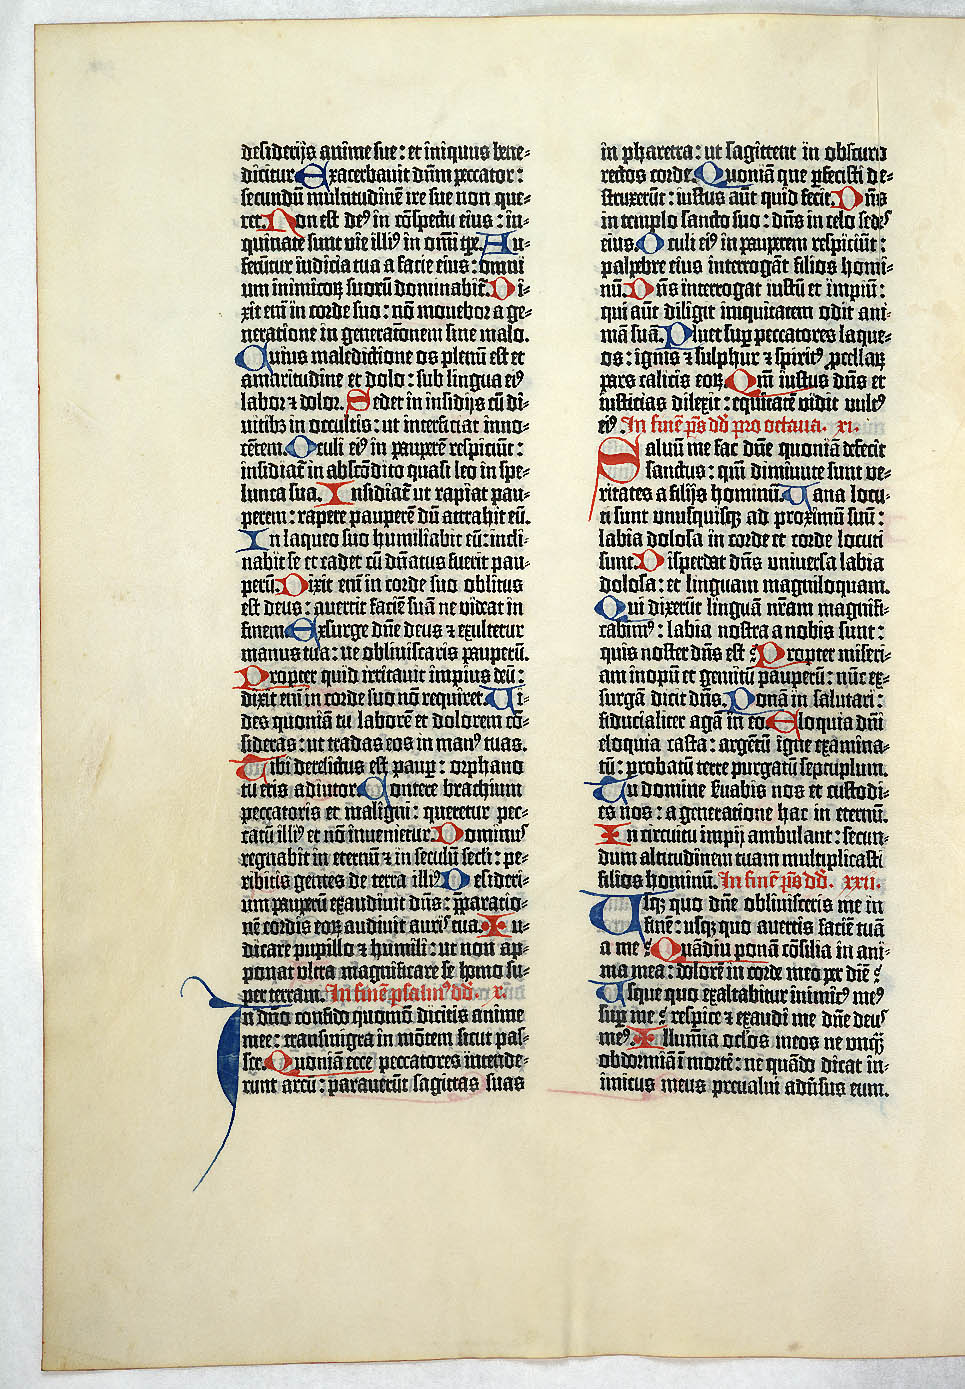 desiderijs anime sue: et iniquus bene-
dicitur. Exacerbavit dnm peccator:
secundū multitudinē ire sue non que-
ret. Non est deꝰ in cōspectu eius: in-
quinate sunt vie illiꝰ in omi tpe. Au-
ferūtur iudicia tua a facie eius: omni
um inimicoꝝ suorū dominabit̄. Di-
xit em̄ in corde suo: nō movebor a ge-
neratione in generacōnem sine malo.
Cuius maledictione os plenū est et
amaritudine et dolo: sub lingua eiꝰ
labor ⁊ dolor. Sedet in insidijs cū di-
vitibꝫ in occultis: ut interficiat inno-
cētem. Oculi eiꝰ in pauperē respiciūt:
insidiat̄ in abscōdito quasi leo in spe-
lunca sua. Insidiat̄ ut rapiat pau-
perem: rapere pauperē dū attrahit eū.
In laqueo suo humiliabit eū: incli-
nabit se et cadet cū dn̄atus fuerit pau-
perū. Dixit em̄ in corde suo oblitus
est deus: avertit faciē suā ne videat in
finem. Exsurge dn̄e deus ⁊ exultetur
manus tua: ne obliviscaris pauperū.
Propter quid irritavit impius deū:
dixit em̄ in corde suo nō requiret. Vi-
des quoniā tu laborē et dolorem cō-
sideras: ut tradas eos in manꝰ tuas.
Tibi derelictus est paup̄: orphano
tu eris adiutor. Contere brachium
peccatoris et maligni: queretur pec-
catū illiꝰ et nō invenietur. Dominus
regnabit in eternū ⁊ in seculū secli: pe-
ribitis gētes de terra illiꝰ. Desideri-
um pauperū exaudivit dn̄s: p̄paratio-
nē cordis eoꝝ audivit auris tua. Iu-
dicare pupillo ⁊ humili: ut non ap-
ponat ultra magnificare se homo su-
per terram. In finē psalmꝰ dd̄. x.
In dn̄o confido quomō dicitis anime
mee: transmigra in mōtem sicut pas-
ser. Quoniā ecce peccatores intende-
runt arcū: paraverūt sagittas suas
in pharetra: ut sagittent in obscuro
rectos corde. Quoniā que ꝑfecisti de-
struxerūt: iustus aūt quid fecit. Dn̄s
in templo sancto suo: dn̄s in celo sedes
eius. Oculi eiꝰ in pauperem respiciūt:
palpebre eius interrogāt filios homi-
nū. Dn̄s interrogat iustū et impiū:
qui aūt diligit iniquitatem odit ani-
mā suā. Pluet sup̄ peccatores laque-
os: ignis ⁊ sulphur ⁊ spiritꝰ ꝓcellaꝝ
pars calicis eoꝝ. Qm̄ iustus dn̄s et
iusticias dilexit: equitatē vidit vultꝰ
eiꝰ. In finē ps̄ dd̄ pro octava. xi.
Salvū me fac dn̄e quoniā defecit
sanctus: qm̄ diminute sunt ve-
ritates a filijs hominū. Vana locu-
ti sunt unusquisqꝫ ad proximū suū:
labia dolosa in corde et corde locuti
sunt. Disperdat dn̄s universa labia
dolosa: et linguam magniloquam.
Qui dixerūt linguā nr̄am magnifi-
cabimꝰ: labia nostra a nobis sunt:
quis noster dn̄s est? Propter miseri-
am inopū et gemitū pauperū: nūc ex-
surgā dicit dn̄s. Ponā in salutari:
fiducialiter agā in eo. Eloquia dn̄i
eloquia casta: argētū igne examina-
tū: probatū terre purgatū septuplum.
Tu domine servabis nos et custodi-
es nos: a generatione hac in eternū.
In circuitu impij ambulant: secun-
dum altitudinem tuam multiplicasti
filios hominū. In finē ps̄ dd̄. xxii.
Usqꝫ quo dn̄e oblivisceris me in
finē: usqꝫ quo avertis faciē tuā
a me? Quādiu ponā cōsilia in ani-
ma mea: dolorē in corde meo per diē?
Usque quo exaltabitur inimicꝰ meꝰ
sup̄ me? respice ⁊ exaudi me dn̄e deus
meꝰ. Illumia oc̄los meos ne unqꝫ
obdormiā ī morte: ne quādo dicat in-
imicus meus prevalui adūsus eum.